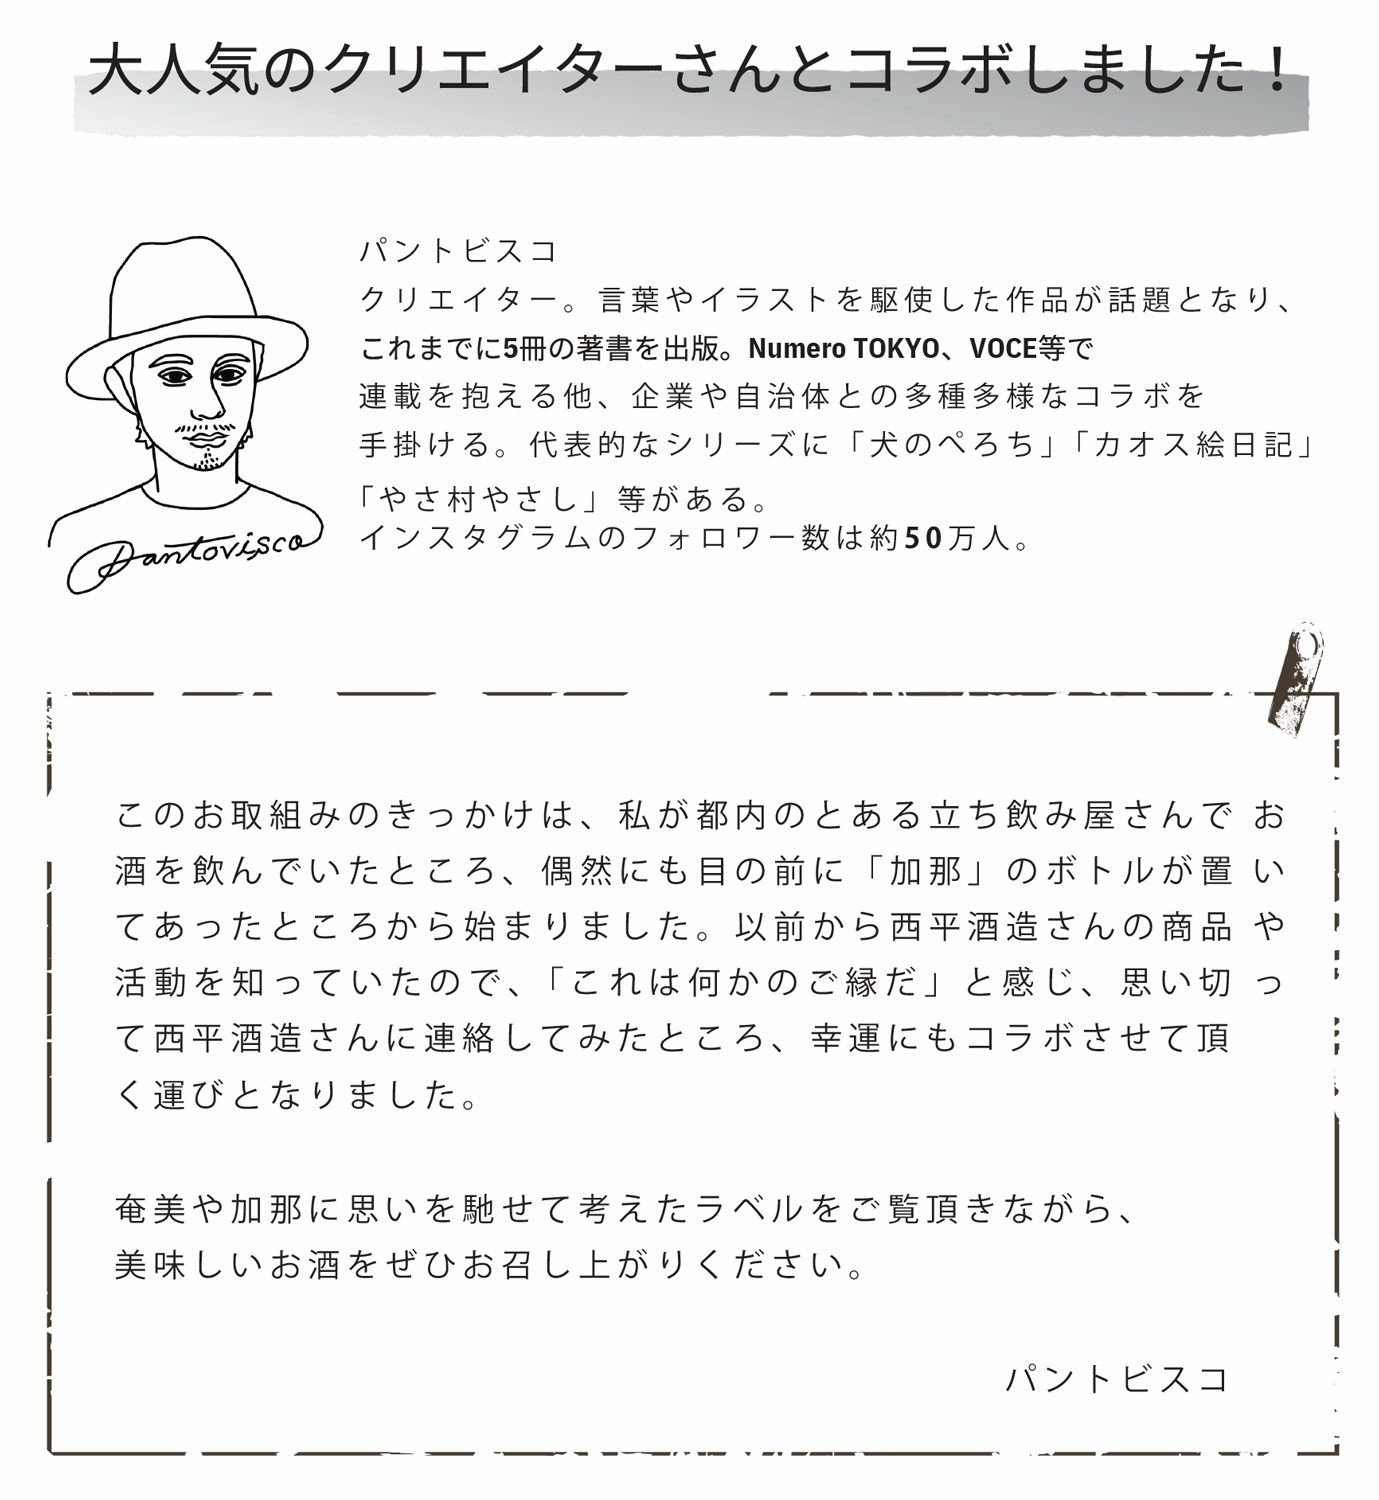 大人気のクリエイターさんとコラボしました！
パントビスコ
クリエイター。言葉やイラストを駆使した作品が話題となり、
これまでに5冊の著書を出版。Numero TOKYO、VOCE等で
連載を抱える他、企業や自治体との多種多様なコラボを
手掛ける。代表的なシリーズに「犬のぺろち」「カオス絵日記」
「やさ村やさし」等がある。
インスタグラムのフォロワー数は約50万人。
Pantovisco
このお取組みのきっかけは、私が都内のとある立ち飲み屋さんで お
酒を飲んでいたところ、偶然にも目の前に「加那」のボトルが置 い
てあったところから始まりました。以前から西平酒造さんの商品 や
活動を知っていたので、「これは何かのご縁だ」と感じ、思い切 っ
て西平酒造さんに連絡してみたところ、幸運にもコラボさせて頂
く運びとなりました。
奄美や加那に思いを馳せて考えたラベルをご覧頂きながら、
美味しいお酒をぜひお召し上がりください。
パントビスコ